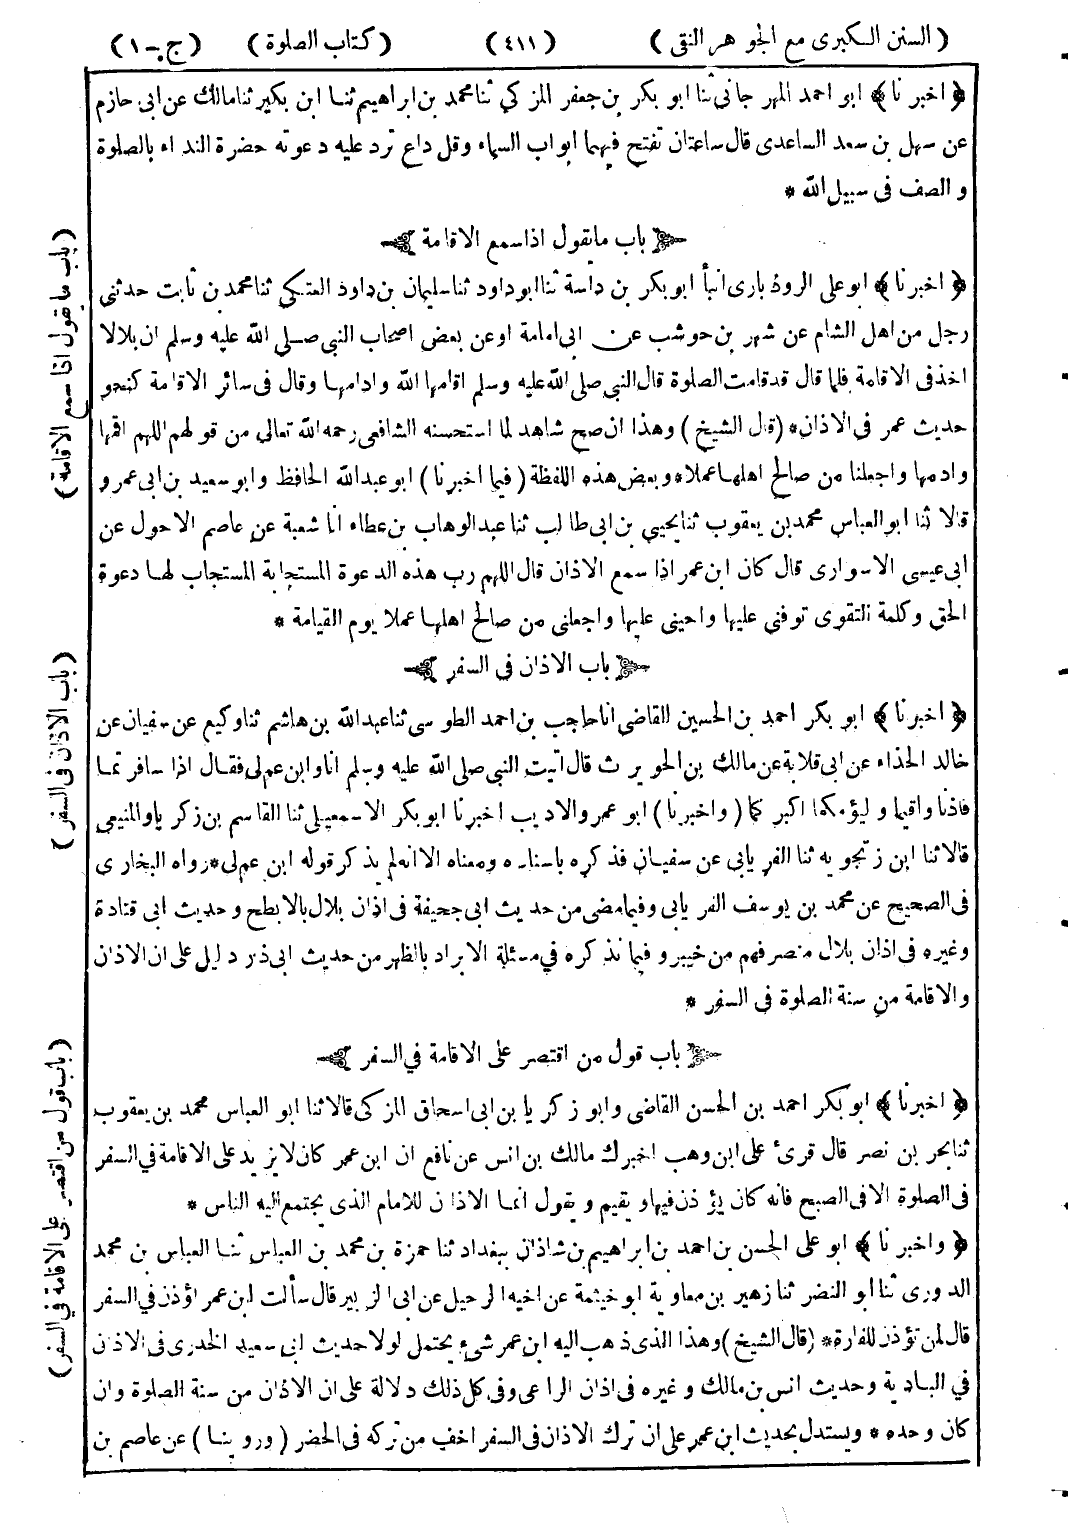 ( السنن الكبرى مع الجوهر النقى ) ( ٤١١ ) ( كتاب الصلوة ) ( ج-١ )
﴿ اخبرنا ﴾ ابو احمد المهر جانى ثنا ابو بكر بن جعفر المزكي ثنا محمد بن ابراهيم ثنا ابن بكير ثنا مالك عن ابى حازم
عن سهل بن سعد الساعدى قال ساعتان تفتح فيهما ابواب السماء وقل داع ترد عليه دعوته حضرة النداء بالصلوة
و الصف فى سبيل الله *
باب ما يقول اذا سمع الاقامة
﴿ اخبرنا ﴾ ابو على الروذبارى انبأ ابو بكر بن داسة ثنا ابو داود ثنا سليمان بن داود العتكى ثنا محمد بن ثابت حدثنى
رجل من اهل الشام عن شهر بن حوشب عن ابى امامة او عن بعض اصحاب النبى صلى الله عليه وسلم ان بلالا
اخذ فى الاقامة فلما قال قد قامت الصلوة قال النبى صلى الله عليه وسلم اقامها الله وادامها وقال فى سائر الاقامة كنحو
حديث عمر فى الاذان * ( قال الشيخ ) وهذا ان صح شاهد لما استحسنه الشافعى رحمه الله تعالى من قولهم اللهم اقمها
وادمها واجعلنا من صالح اهلها عملا * وبعض هذه اللفظة ( فيما اخبرنا ) ابو عبد الله الحافظ وابو سعيد بن ابى عمرو
قالا ثنا ابو العباس محمد بن يعقوب ثنا يحيى بن ابى طالب ثنا عبد الوهاب بن عطاء انا شعبة عن عاصم الاحول عن
ابى عيسى الاسوارى قال كان ابن عمر اذا سمع الاذان قال اللهم رب هذه الدعوة المستجابة المستجاب لها دعوة
الحق وكلمة التقوى توفنى عليها واحينى عليها واجعلنى من صالح اهلها عملا يوم القيامة *
باب الاذان فى السفر
﴿ اخبرنا ﴾ ابو بكر احمد بن الحسين القاضى انا حاجب بن احمد الطوسى ثنا عبد الله بن هاشم ثنا وكيع عن سفيان عن
خالد الحذاء عن ابى قلابة عن مالك بن الحويرث قال اتيت النبى صلى الله عليه وسلم انا وابن عم لى فقال اذا سافرتما
فاذنا واقيما وليؤمكما اكبركما ( واخبرنا ) ابو عمرو الاديب اخبرنا ابو بكر الاسمعيلى ثنا القاسم بن زكريا والمنيعى
قالا ثنا ابن زنجويه ثنا الفريابى عن سفيان فذكره باسناده ومعناه الا انه لم يذكر قوله ابن عم لى * رواه البخارى
فى الصحيح عن محمد بن يوسف الفريابى وفيما مضى من حديث ابى جحيفة فى اذان بلال بالابطح وحديث ابى قتادة
وغيره فى اذان بلال منصرفهم من خيبر و فيما نذكره في مسئلة الابراد بالظهر من حديث ابى ذر دليل على ان الاذان
والاقامة من سنة الصلوة فى السفر *
باب قول من اقتصر على الاقامة في السفر
﴿ اخبرنا ﴾ ابو بكر احمد بن الحسن القاضى وابو زكريا بن ابى اسحاق المزكى قالا ثنا ابو العباس محمد بن يعقوب
ثنا بحر بن نصر قال قرئ على ابن وهب اخبرك مالك بن انس عن نافع ان ابن عمر كان لا يزيد على الاقامة في السفر
فى الصلوة الا فى الصبح فانه كان يؤذن فيها ويقيم و يقول انما الاذان للامام الذى يجتمع اليه الناس *
﴿ واخبرنا ﴾ ابو على الحسن بن احمد بن ابراهيم بن شاذان ببغداد ثنا حمزة بن محمد بن العباس ثنا العباس بن محمد
الدورى ثنا ابو النضر ثنا زهير بن معاوية ابو خيثمة عن اخيه الرحيل عن ابى الزبير قال سألت ابن عمر اؤذن في السفر
قال لمن تؤذن للفارة * ( قال الشيخ ) وهذا الذى ذهب اليه ابن عمر شىء يحتمل لولا حديث ابى سعيد الخدرى فى الاذان
في البادية وحديث انس بن مالك و غيره فى اذان الراعى وفى كل ذلك دلالة على ان الاذان من سنة الصلوة وان
كان وحده * ويستدل بحديث ابن عمر على ان ترك الاذان فى السفر اخف من تركه فى الحضر ( وروينا ) عن عاصم بن
( باب ما يقول اذا سمع الاقامة )
( باب الاذان فى السفر )
( باب قول من اقتصر على الاقامة في السفر )